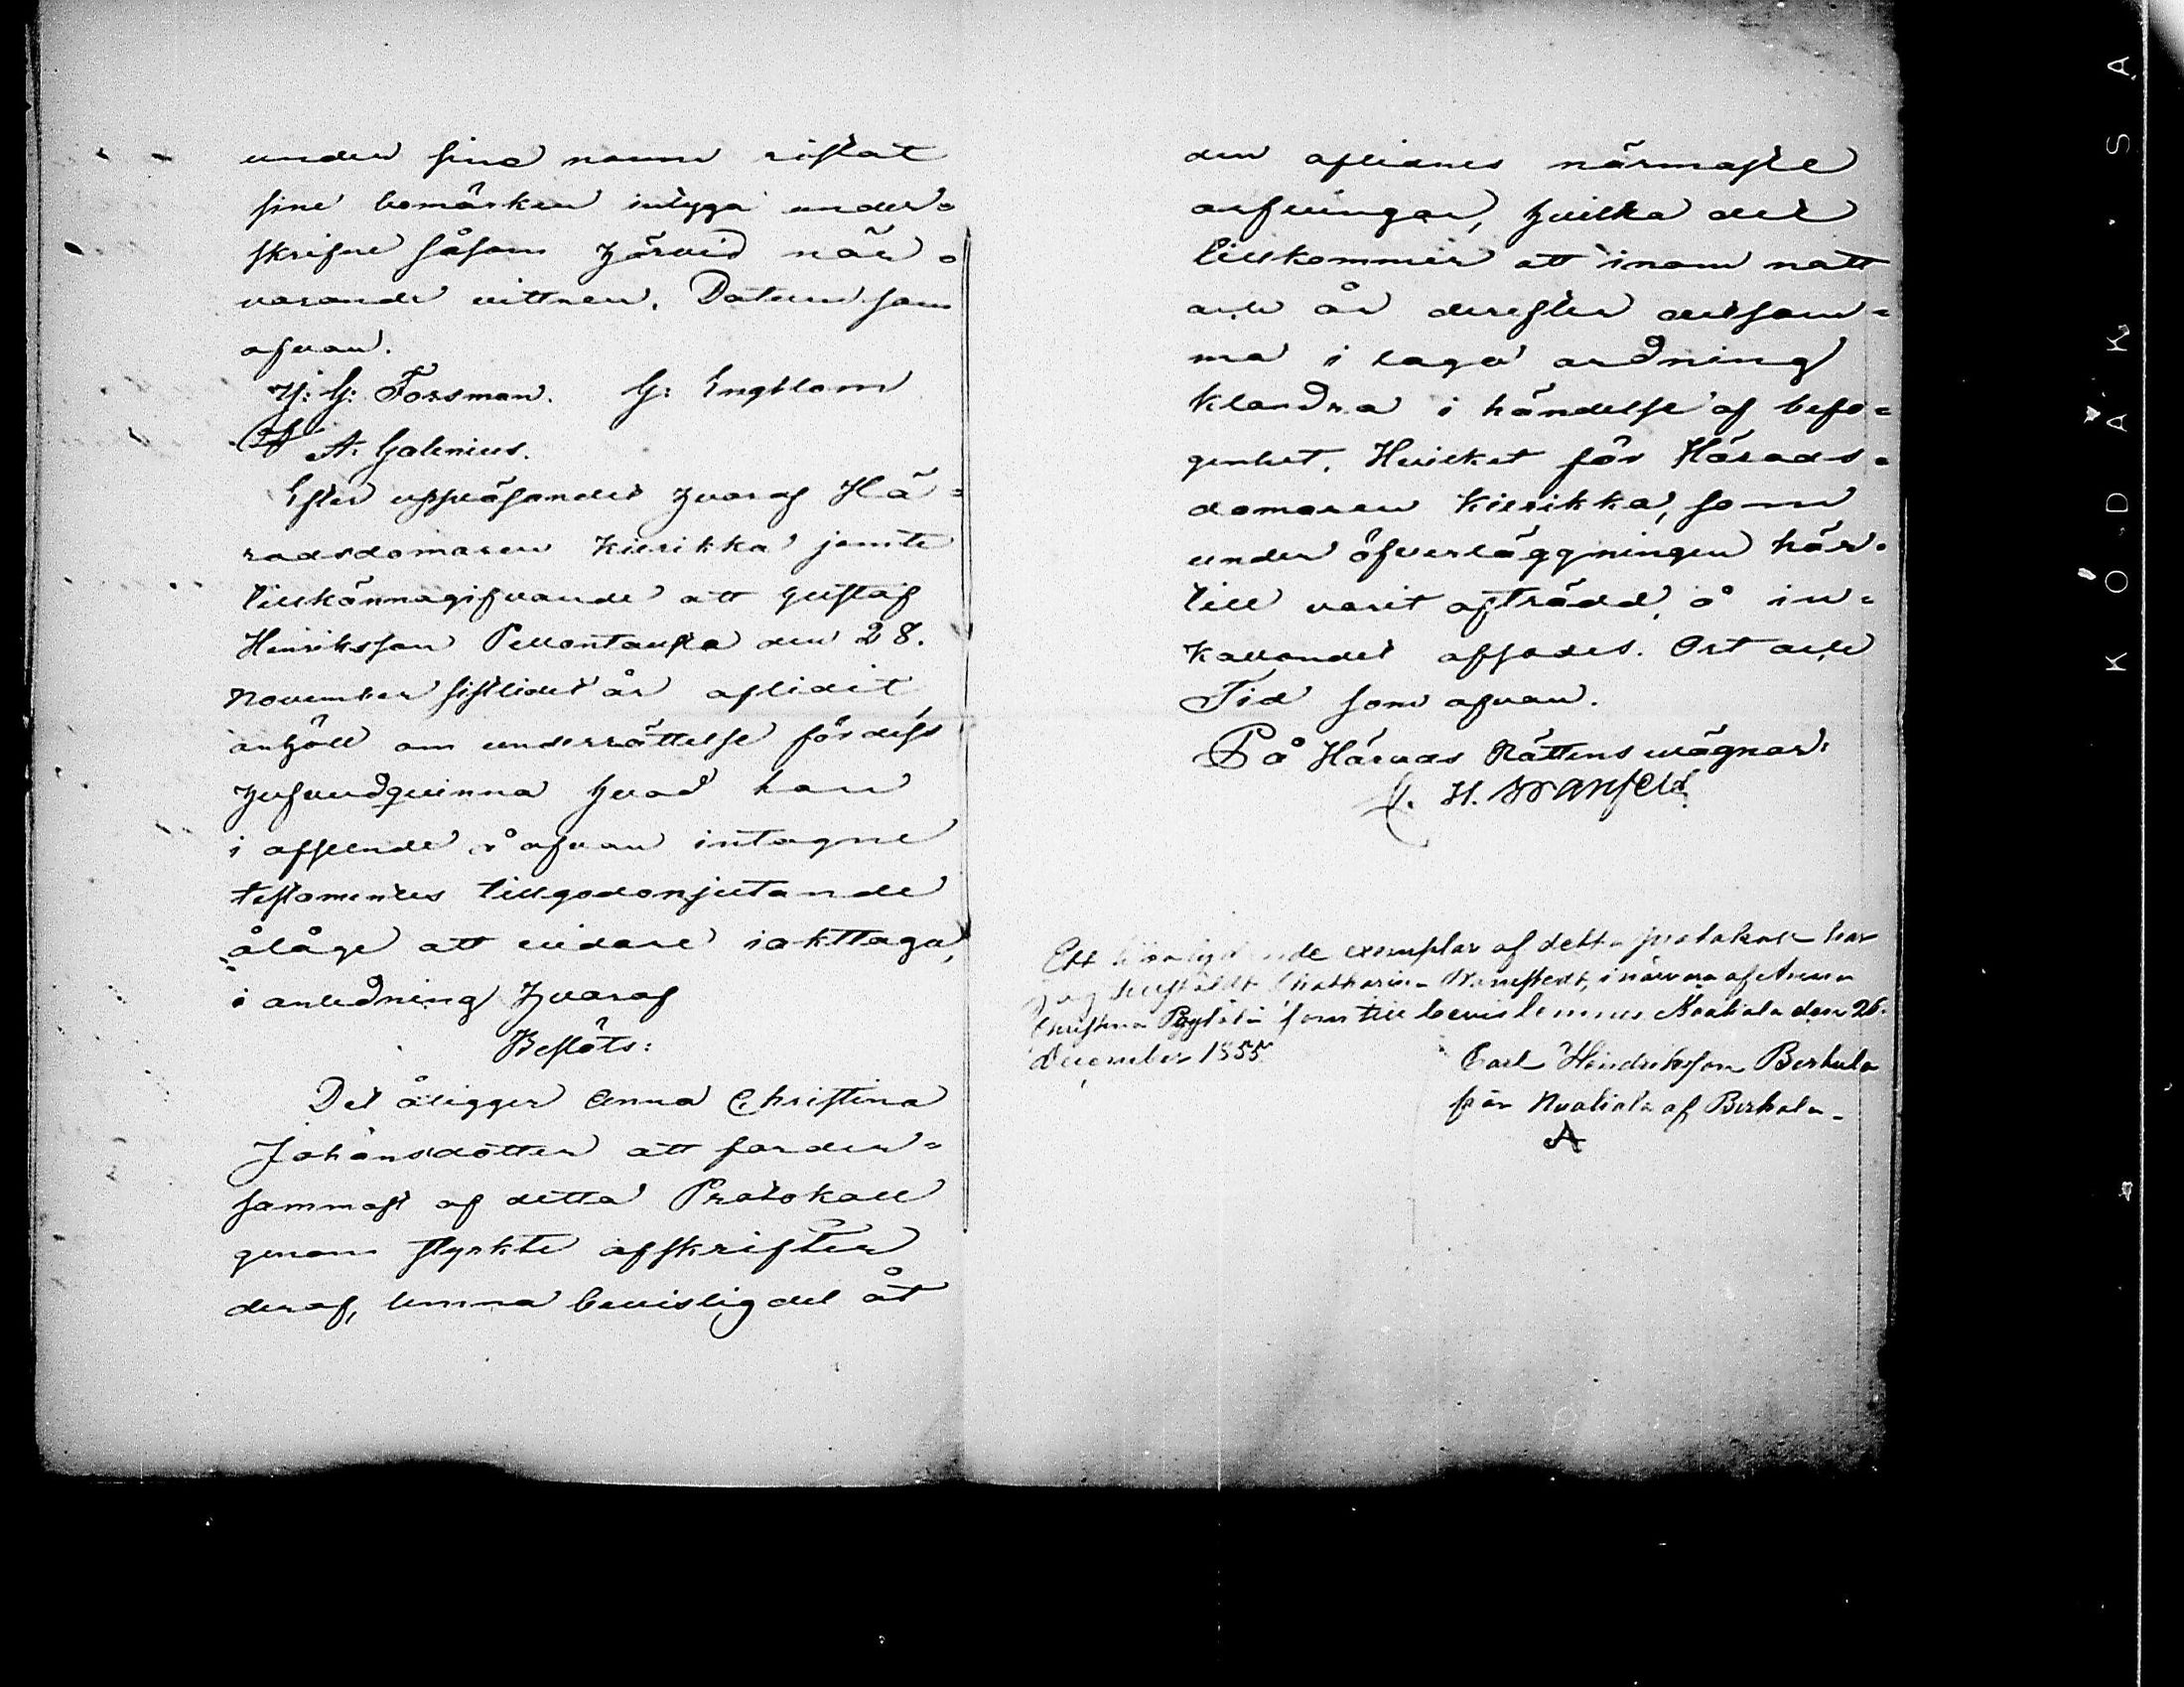 under sina namn ristat
sine bomärken intyga under=
skrifne såsom härvid när=
varande vittnen. Datum som
ofvan.
H: G: Forsman. G: Engblom
A. Galenius.
Efter uppläsandet hvaraf Hä=
radsdomaren Kierikka jemte
tillkännagifvande att Gustaf
Henriksson Pellontausta den 28.
November sistlidet år aflidit,
anhöll om underrättelse för dess
hufvudqvinna hvad han
i afseende å ofvan intagne
testamentes tillgodonjutande
ålåge att vidare iakttaga,
i anledning hvaraf
Beslöts:
Det åligger Anna Christina
Johansdotter att forder=
sammast af detta Protokoll
genom styrkte afskrifter
deraf, lemna bevislig del åt
den aflidnes närmaste
arfvingar, hvilka det
tillkommer att inom natt
och år derefter detsam=
ma i laga ordning
klandra i händelse af befo=
genhet. Hvilket för Härads=
domaren Kierikka, som
under öfverläggningen här=
till varit afträdd, å in=
kallandet afsades. Ort och
Tid som ofvan.
På Härads Rättens vägnar:
H. Wranfeld
Ett lika lydande exemplar af detta protokoll har
jag tillstäldt Catharina, i närvaro af Anna
Christina som till bevis lemnas Koaliala den 26.
December 1855.
Carl Hendriksson Berkula
från Noaliala af Birkala
A
KODAK . SA